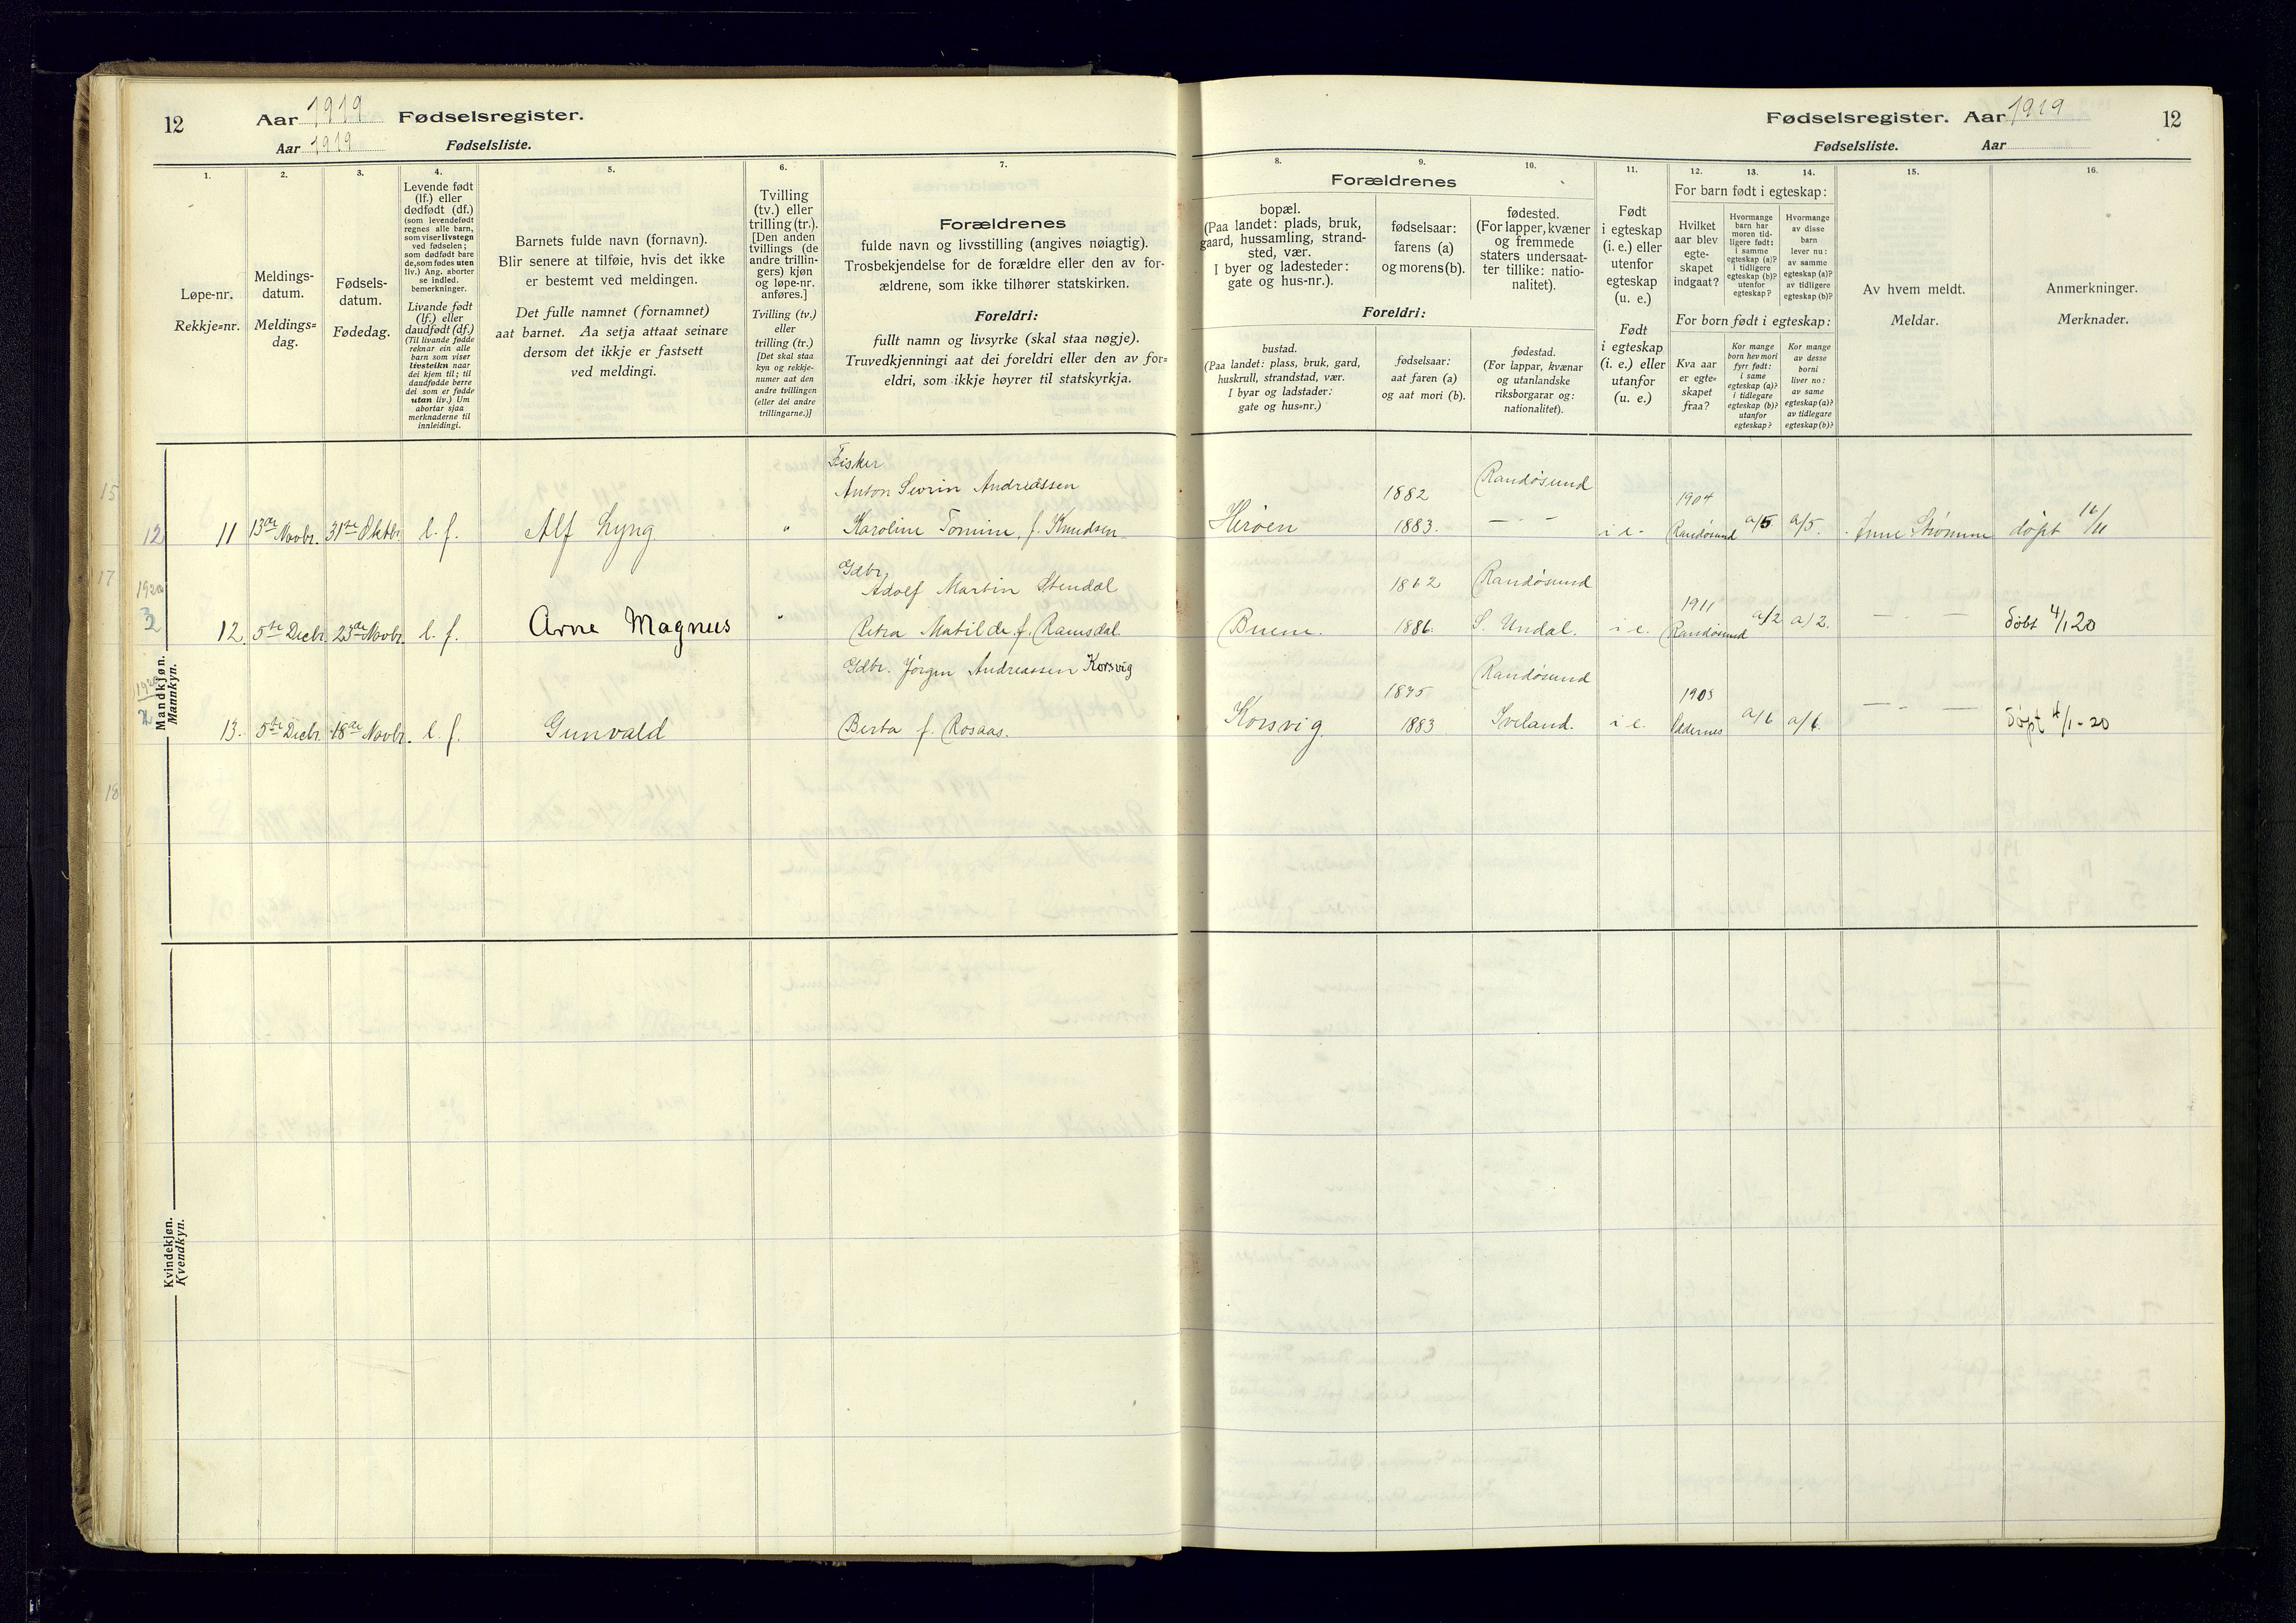 12 Aar 1919 Fødselsregister.
Aar 1919 Fødselsliste.
1. 2. 3. 4. 5. 6. 7.
Løpe-nr.
Rekkje=nr.
Meldings-
datum.
Meldings=
dag.
Fødsels-
datum.
Fødedag.
Levende født
(lf.) eller
dødfødt (df.)
(som levendefødt
regnes alle barn,
som viser livstegn
ved fødselen;
som dødfødt bare
de, som fødes uten
liv.) Ang. aborter
se indled.
bemerkninger.
Livande født
(lf.) eller
daudfødt (df.)
(Til livande fødde
reknar ein alle
barn som viser
livsteikn naar
dei kjem til; til
daudfødde berre
dei som er fødde
utan liv.) Um
abortar sjaa
merknaderne til
innleidingi.
Barnets fulde navn (fornavn).
Blir senere at tilføie, hvis det ikke
er bestemt ved meldingen.
Det fulle namnet (fornamnet)
aat barnet. Aa setja attaat seinare
dersom det ikkje er fastsett
ved meldingi.
Tvilling
(tv.) eller
trilling (tr.).
[Den anden
tvillings (de
andre trillin-
gers) kjøn
og løpe-nr.
anføres.]
Tvilling (tv.)
eller
trilling (tr.)
[Det skal staa
kyn og rekkje-
numer aat den
andre tvillingen
(eller dei andre
trillingarne.)]
Forældrenes
fulde navn og livsstilling (angives nøiagtig).
Trosbekjendelse for de forældre eller den av for-
ældrene, som ikke tilhører statskirken.
Foreldri:
fullt namn og livsyrke (skal staa nøgje).
Truvedkjenningi aat dei foreldri eller den av for=
eldri, som ikkje høyrer til statskyrkja.
Mandkjøn.
Mannkyn.
15
Fisker
Anton Sevrin Andreassen
12 11 13de Novbr. 31te Oktbr. l. f. Alf Lyng " Karoline Tomine, f. Knudsen
17
1920
3
Gdbr.
Adolf Martin Stendal
12. 5te Decbr. 23de Novbr. l. f. Arne Magnus " Petra Matilde, f. Ramsdal.
1920
2
Gdbr. Jörgen Andreassen Korsvig
13. 5te Decbr. 18de Novbr. l. f. Gunvald Berta f. Rosaas.
18
Kvindekjøn.
Kvendkyn.
Fødselsregister. Aar 1919 12
Fødselsliste. Aar
8. 9. 10. 11. 12. 13. 14. 15. 16.
Forældrenes
bopæl.
(Paa landet: plads, bruk,
gaard, hussamling, strand-
sted, vær.
I byer og ladesteder:
gate og hus-nr.).
fødselsaar:
farens (a)
og morens (b).
fødested.
(For lapper, kvæner
og fremmede
staters undersaat-
ter tillike: natio-
nalitet).
Foreldri:
bustad.
(Paa landet: plass, bruk, gard,
huskrull, strandstad, vær.
I byar og ladstader:
gate og hus=nr.)
fødselsaar:
aat faren (a)
og aat mori (b).
fødestad.
(For lappar, kvænar
og utanlandske
riksborgarar og:
nationalitet).
Født
i egteskap
(i. e.) eller
utenfor
egteskap
(u. e.)
Født
i egteskap
(i. e.) eller
utanfor
(u. e.)
For barn født i egteskap:
Hvilket
aar blev
egte-
skapet
indgaat?
Hvormange
barn har
moren tid-
ligere født:
i samme
egteskap (a)?
i tidligere
egteskap (b)?
utenfor
egteskap?
Hvormange
av disse
barn
lever nu:
av samme
egteskap (a)?
av tidligere
egteskap (b)?
For born født i egteskap:
Kva aar
er egte=
skapet
fraa?
Kor mange
born hev mori
fyrr født:
i same
egteskap (a)?
i tidlegare
egteskap (b)?
utanfor
egteskap?
Kor mange
av desse
borni
liver no:
av same
egteskap (a)?
av tidlegare
egteskap (b)?
Av hvem meldt.
Meldar.
Anmerkninger.
Merknader.
1882 Randösund 1904
Herøen 1883. — " — i e. Randösund a/5 a/5. Anne Strömme døpt 16/11
1862 Randösund 1911
Buene. 1886. S. Undal. i e. Randösund a/2 a/2. — " — Döbt 4/1 20
Randösund 1903
Korsvig 1883 Iveland. i e. Oddernes a/6 a/6. — " — Døpt 4/1-20